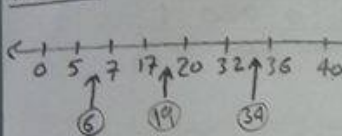 0 5 7 17 20 32 36 40
6 19 34